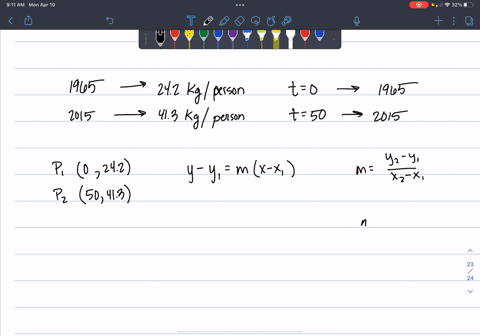 9:11 AM Mon Apr 10
32%
1965 → 24.2 Kg/person t=0 → 1965
2015 → 41.3 Kg/person t=50 → 2015
P₁ (0, 24.2) y-y₁ = m(x-x₁) m = y₂-y₁ / x₂-x₁
P₂ (50, 41.3)
n
23
/
24